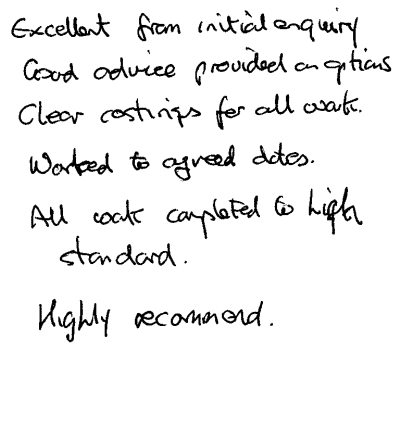 Excellent from initial enquiry
Good advice provided on options
Clear costings for all work.
Worked to agreed dates.
All work completed to high
standard.
Highly recommend.